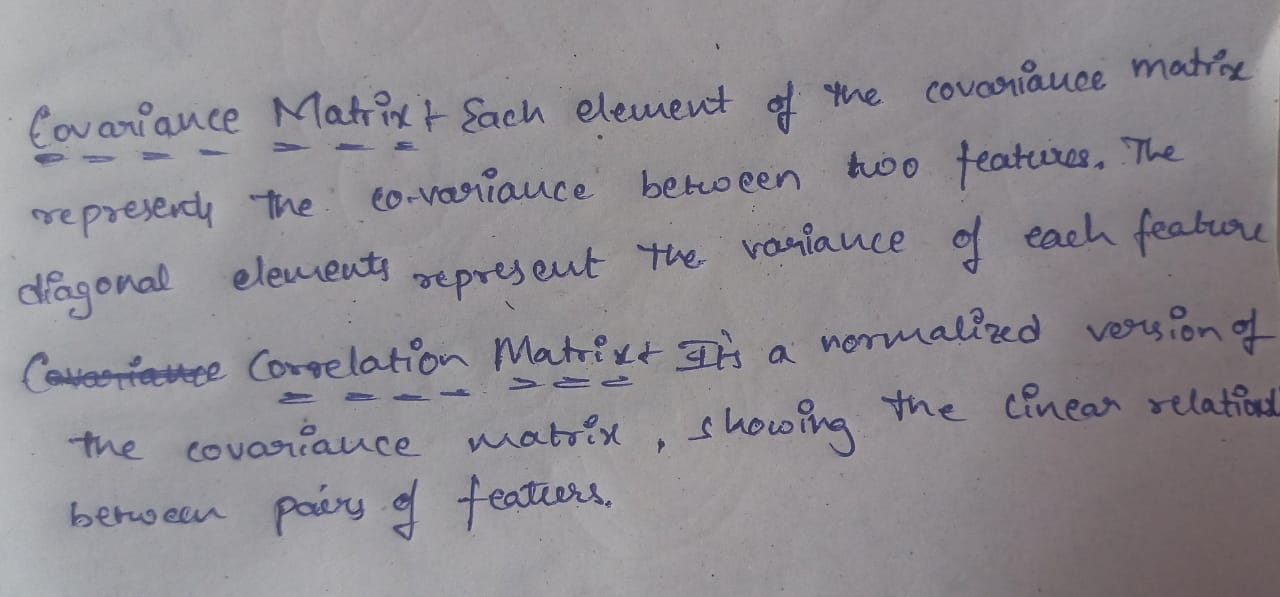 Covariance Matrix :- Each element of the covariance matrix
represents the co-variance between two features. The
diagonal elements represent the variance of each feature
Covariance Correlation Matrix :- It is a normalized version of
the covariance matrix, showing the linear relations
between pairs of featuers.